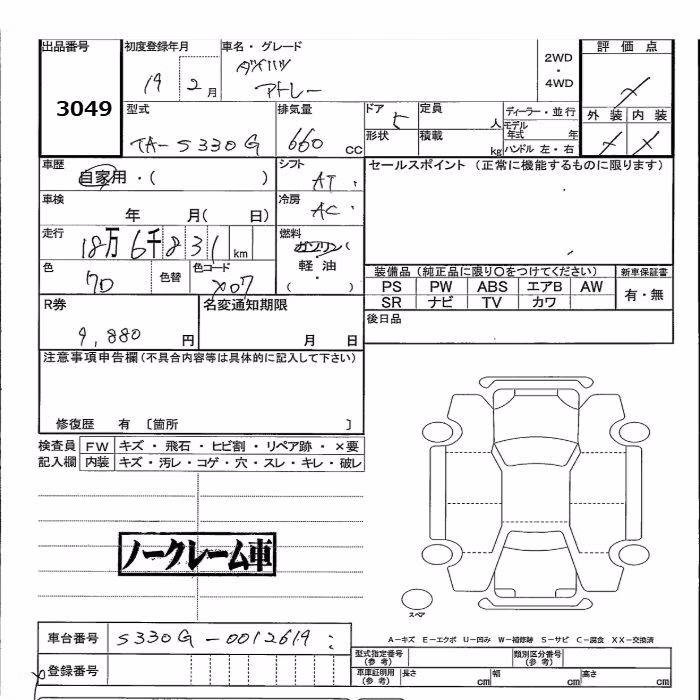 出品番号 初度登録年月 車名・グレード 2WD・4WD 評価点
3049 19 2月 ダイハツ アトレー
型式 排気量 ドア 定員 人 ディーラー・並行 外装 内装
TA-S330G 660 CC 5 形状 積載 kg モデル年式 年 ハンドル 左・右
車歴 シフト セールスポイント (正常に機能するものに限ります)
自家用・( ) AT
車検 冷房
年 月( 日) AC
走行 燃料
18万6千831km ガソリン( 軽油・( )
色 色替 色コード 装備品 (純正品に限り○をつけてください) 新車保証書
X07 PS PW ABS エアB AW 有・無
SR ナビ TV カワ
R券 名変通知期限 後日品
9,880円 月 日
注意事項申告欄(不具合内容等は具体的に記入して下さい)
修復歴 有 〔箇所 〕
検査員 FW キズ・飛石・ヒビ割・リペア跡・×要
記入欄 内装 キズ・汚レ・コゲ・穴・スレ・キレ・破レ
ノークレーム車
スペア
A-キズ E-エクボ U-凹み W-補修跡 S-サビ C-腐食 XX-交換済
車台番号 S330G-0012619
型式指定番号(参考) 類別区分番号(参考)
登録番号 車庫証明用(参考) 長さ cm 幅 cm 高さ cm